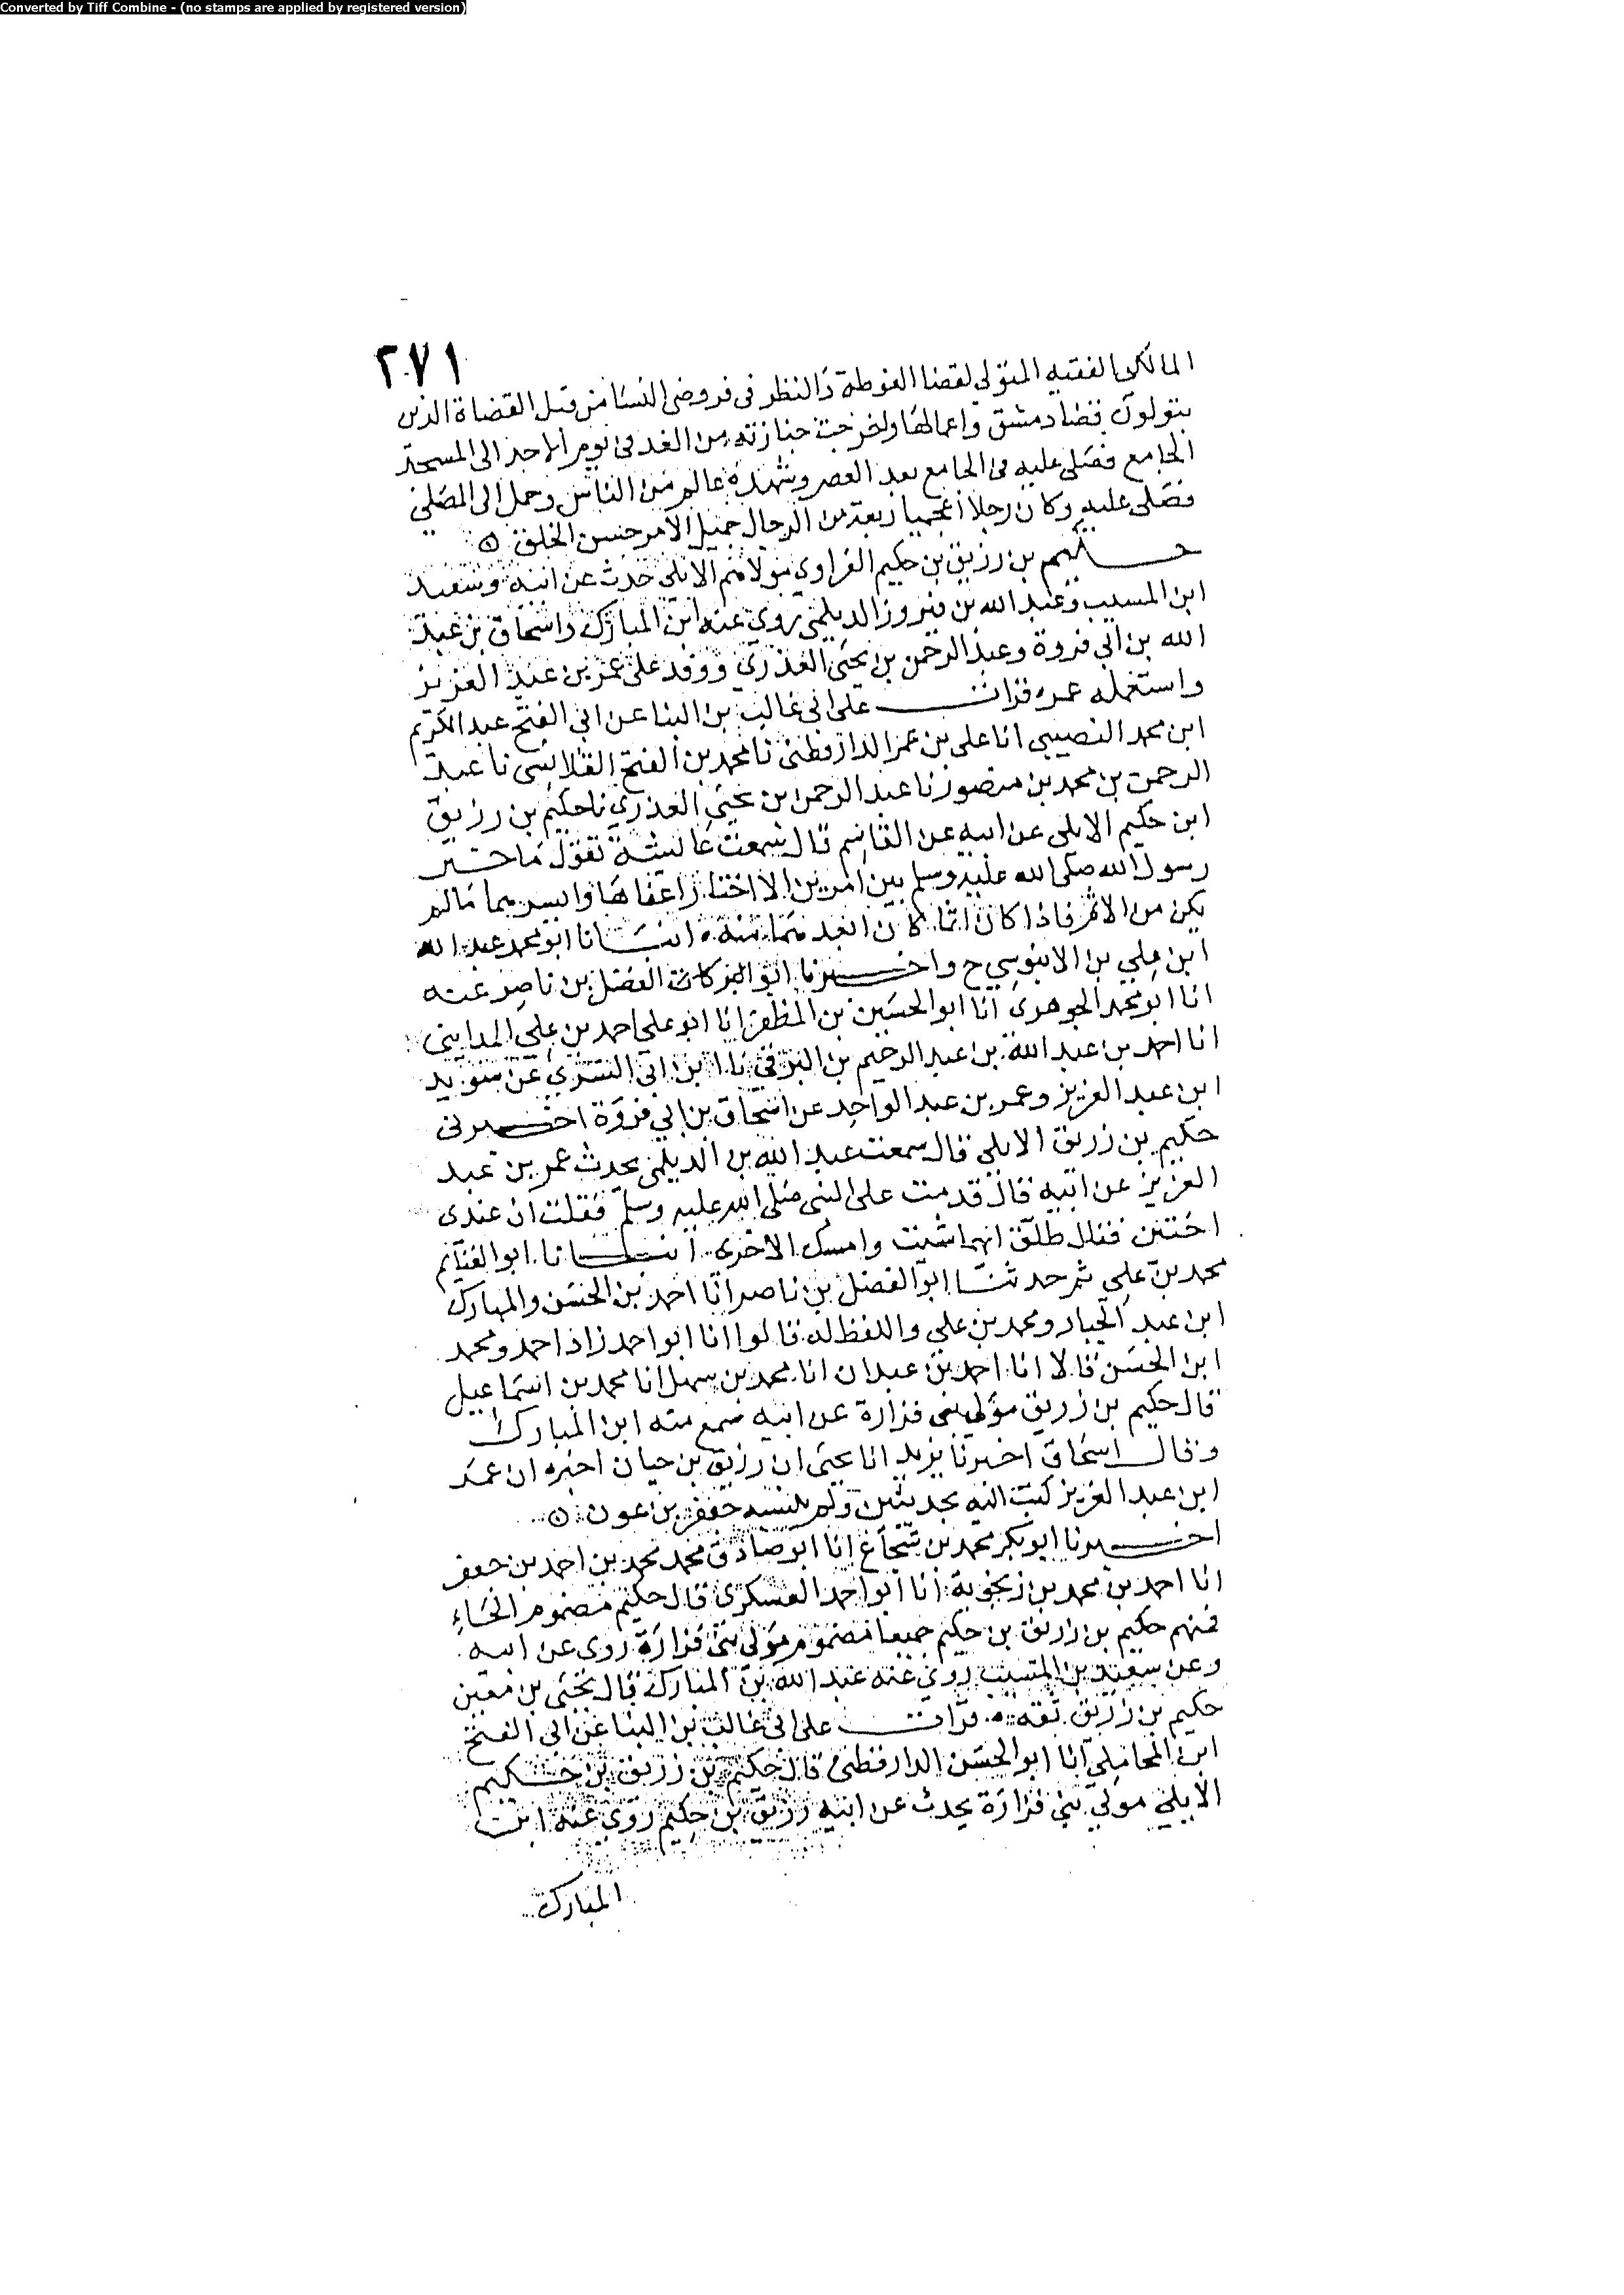 Converted by Tiff Combine - (no stamps are applied by registered version)
٢٧١
المالكي الفقيه المتولي لقضا الغوطة والنظر في فروض النسا من قبل القضاة الذين
يتولون قضا دمشق واعمالها واخرجت جنازته من الغد في يوم الاحد الى المسجد
الجامع فصلى عليه في الجامع بعد العصر وشهده عالم من الناس وحمل الى المصلى
فصلى عليه وكان رجلا اعجميا ربعة من الرجال جميل الامر حسن الخلق ٥
حكيم بن رزيق بن حكيم الفزاوي مولاهم الايلي حدث عن ابيه وسعيد
ابن المسيب وعبد الله بن فيروز الديلمي روى عنه ابن المبارك واسحاق بن عبد
الله بن ابي فروة وعبد الرحمن بن يحيى العذري ووفد على عمر بن عبد العزيز
واستعمله عمر قرات على ابي غالب بن البنا عن ابي الفتح عبد الكريم
ابن محمد النصيبي انا علي بن عمر الدارقطني نا محمد بن الفتح القلانسي نا عبد
الرحمن بن محمد بن منصور نا عبد الرحمن بن يحيى العذري نا حكيم بن رزيق
ابن حكيم الايلي عن ابيه عن القاسم قال سمعت عائشة تقول ما خير
رسول الله صلى الله عليه وسلم بين امرين الا اختار اعفاها وايسرهما ما لم
يكن من الاثم فاذا كان اثما كان ابعدهما منه ٥ انبانا ابو محمد عبد الله
ابن علي بن الابنوسي ح واخبرنا ابو البركات الفضل بن ناصر عنه
انا ابو محمد الجوهري انا ابو الحسين بن المظفر انا ابو علي احمد بن علي المدايني
انا احمد بن عبد الله بن عبد الرحيم بن البرقي نا ابن ابي السري عن سويد
ابن عبد العزيز وعمر بن عبد الواحد عن اسحاق بن ابي فروة اخبرني
حكيم بن زريق الايلي قال سمعت عبد الله بن الديلمي يحدث عمر بن عبد
العزيز عن ابيه قال قدمت على النبي صلى الله عليه وسلم فقلت ان عندي
اختين فقال طلق ايهما شيت وامسك الاخرى انبانا ابو الغنائم
محمد بن علي ثم حدثنا ابو الفضل بن ناصر انا احمد بن الحسن والمبارك
ابن عبد الجبار ومحمد بن علي واللفظ له قالوا انا ابو احمد زاد احمد ومحمد
ابن الحسن قالا انا احمد بن عبدان انا محمد بن سهل انا محمد بن اسماعيل
قال حكيم بن زريق مولى بني فزارة عن ابيه سمع منه ابن المبارك
وقال اسحاق اخبرنا يزيد انا يحيى ان رزيق بن حيان اخبره ان عمر
ابن عبد العزيز كتب اليه بحديثين ولم ينسبه جعفر بن عون ٥
اخبرنا ابو بكر محمد بن شجاع انا ابو صادق محمد بن احمد بن جعفر
انا احمد بن محمد بن زنجوية انا ابو احمد العسكري قال حكيم مضموم الحاء
فمنهم حكيم بن رزيق بن حكيم جميعا مضموم مولى بني فزارة روى عن ابيه
وعن سعيد بن المسيب روى عنه عبد الله بن المبارك قال يحيى بن معين
حكيم بن رزيق ثقة ٥ قرات على ابي غالب بن البنا عن ابي الفتح
ابن المحاملي انا ابو الحسن الدارقطني قال حكيم بن زريق بن حكيم
الايلي مولى بني فزارة يحدث عن ابيه رزيق بن حكيم روى عنه ابن
المبارك